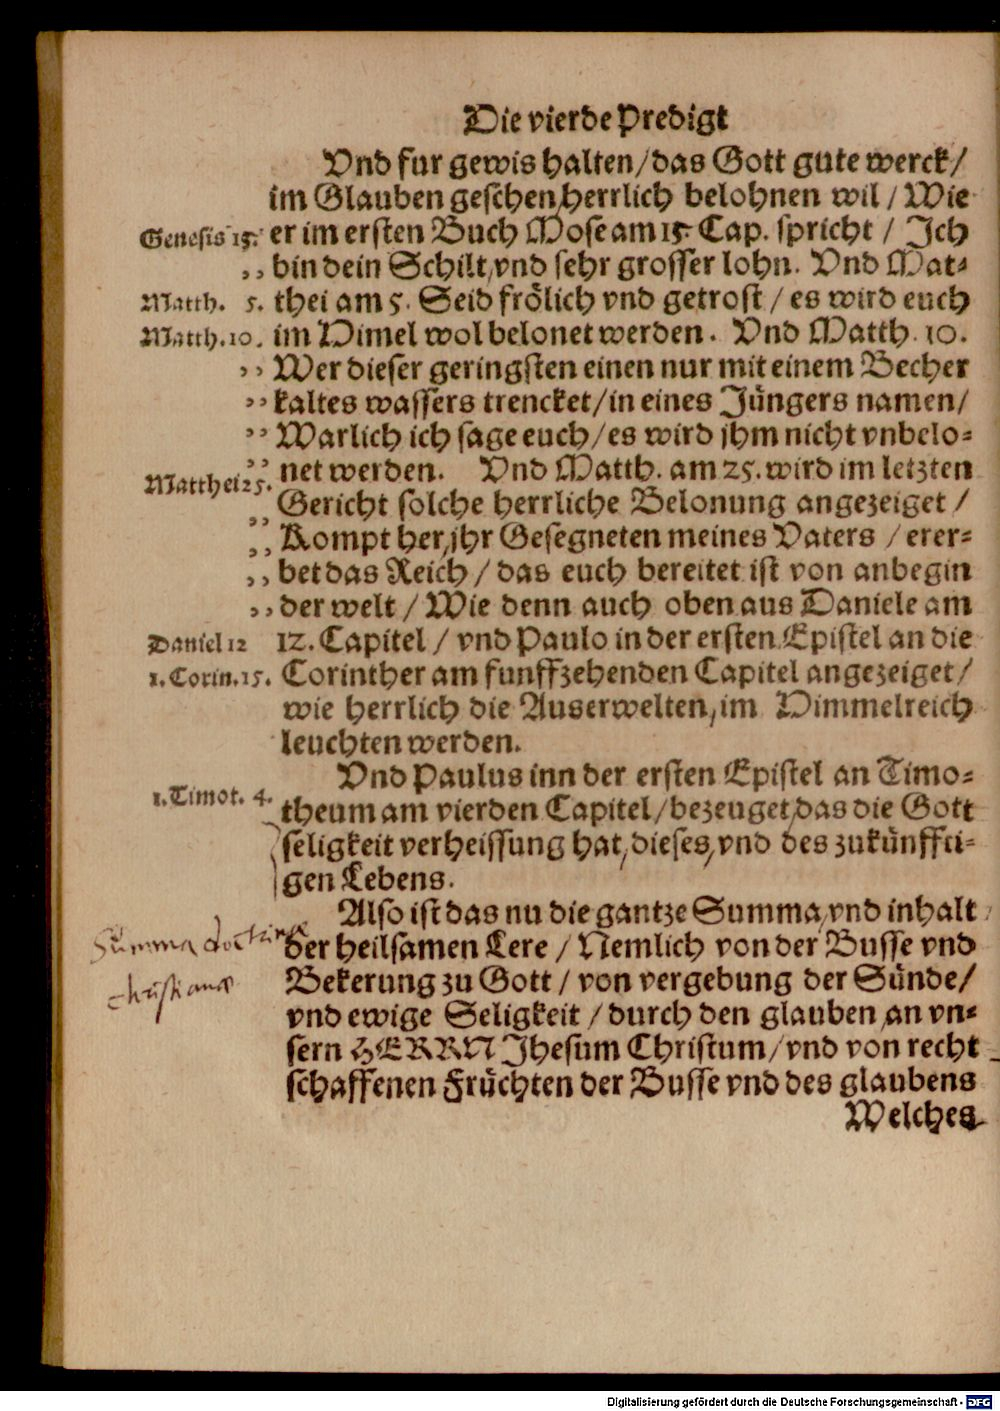 Die vierde Predigt
Vnd fur gewis halten/das Gott gute werck/
im Glauben geschen, herrlich belohnen wil / Wie
Genesis 15. er im ersten Buch Mose am 15. Cap. spricht / Ich
,, bin dein Schilt, vnd sehr grosser lohn. Vnd Mat-
Matth. 5. thei am 5. Seid frölich vnd getrost / es wird euch
Matth. 10. im Himel wol belonet werden. Vnd Matth. 10.
,, Wer dieser geringsten einen nur mit einem Becher
,, kaltes wassers trencket/in eines Jüngers namen/
,, Warlich ich sage euch/es wird jhm nicht vnbelo-
,, net werden. Vnd Matth. am 25. wird im letzten
Matthei 25. Gericht solche herrliche Belonung angezeiget /
,, Kompt her, jhr Gesegneten meines Vaters / erer-
,, bet das Reich / das euch bereitet ist von anbegin
,, der welt / Wie denn auch oben aus Daniele am
Daniel 12 12. Capitel / vnd Paulo in der ersten Epistel an die
1. Corin. 15. Corinther am funffzehenden Capitel angezeiget/
wie herrlich die Auserwelten, im Himmelreich
leuchten werden.
Vnd Paulus inn der ersten Epistel an Timo-
1. Timot. 4. theum am vierden Capitel/bezeuget, das die Gott
seligkeit verheissung hat, dieses, vnd des zukünffti-
gen Lebens.
Also ist das nu die gantze Summa, vnd inhalt
Summa doctrinae der heilsamen Lere / Nemlich von der Busse vnd
christianae Bekerung zu Gott / von vergebung der Sünde/
vnd ewige Seligkeit / durch den glauben, an vn-
sern HERRN Jhesum Christum/vnd von recht
schaffenen Früchten der Busse vnd des glaubens
Welches
Digitalisierung gefördert durch die Deutsche Forschungsgemeinschaft - DFG